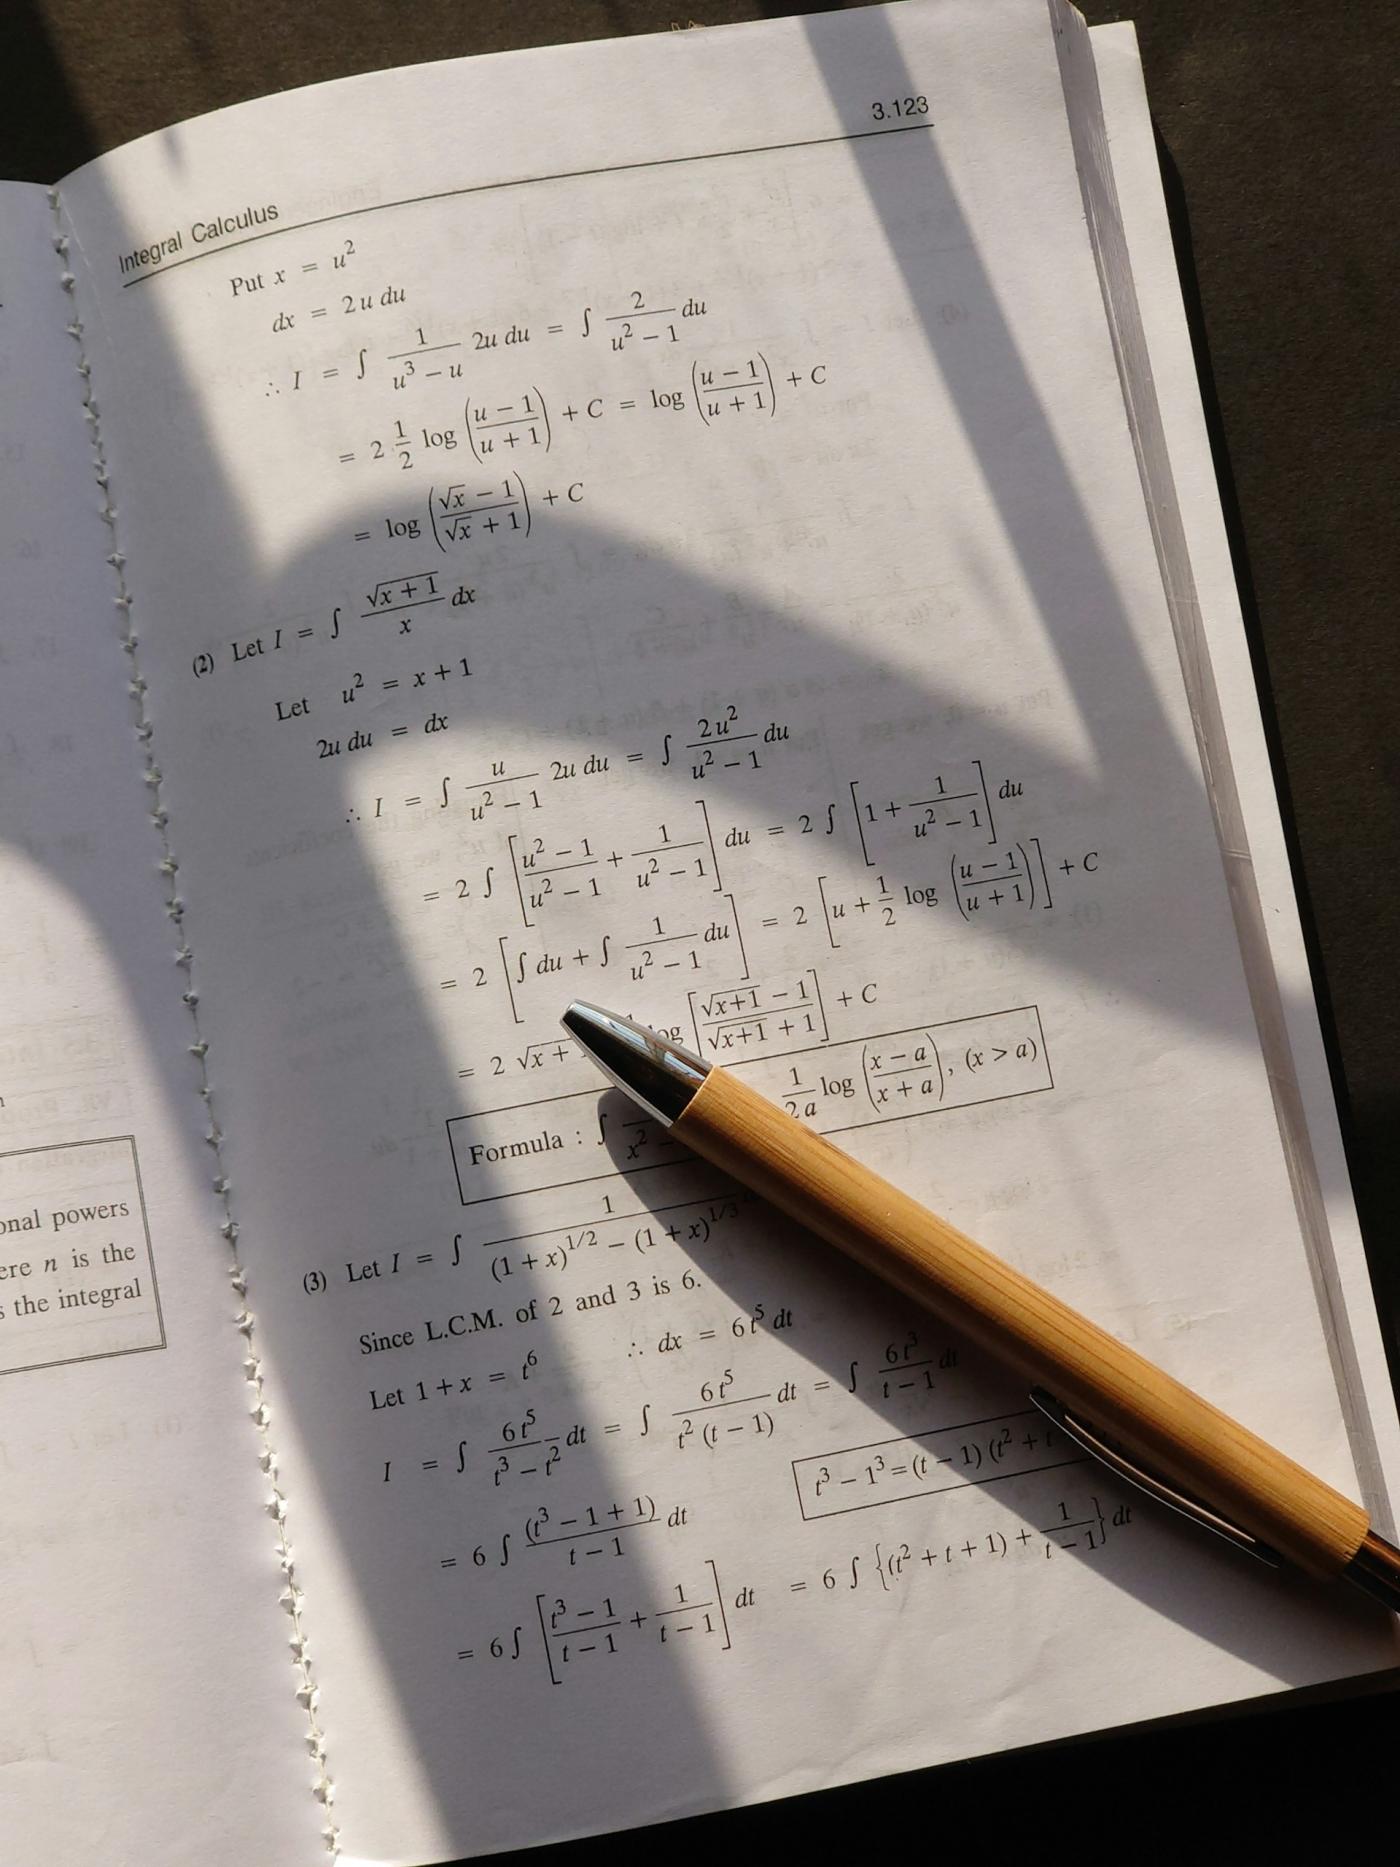 3.123
Integral Calculus
Put x = u²
dx = 2u du
∴ I = ∫ 1/(u³ − u) 2u du = ∫ 2/(u² − 1) du
= 2 1/2 log ((u − 1)/(u + 1)) + C = log ((u − 1)/(u + 1)) + C
= log ((√x − 1)/(√x + 1)) + C
(2) Let I = ∫ √(x + 1)/x dx
Let u² = x + 1
2u du = dx
∴ I = ∫ u/(u² − 1) 2u du = ∫ 2u²/(u² − 1) du
= 2 ∫ [(u² − 1)/(u² − 1) + 1/(u² − 1)] du = 2 ∫ [1 + 1/(u² − 1)] du
= 2 [∫ du + ∫ 1/(u² − 1) du] = 2 [u + 1/2 log ((u − 1)/(u + 1))] + C
= 2 √x + log [(√x+1 − 1)/(√x+1 + 1)] + C
Formula : ∫ x² − 1/2a log ((x − a)/(x + a)), (x > a)
(3) Let I = ∫ 1/((1 + x)^1/2 − (1 + x)^1/3)
Since L.C.M. of 2 and 3 is 6.
Let 1 + x = t⁶ ∴ dx = 6t⁵ dt
I = ∫ 6t⁵/(t³ − t²) dt = ∫ 6t⁵/(t² (t − 1)) dt = ∫ 6t³/(t − 1) dt
= 6 ∫ (t³ − 1 + 1)/(t − 1) dt
t³ − 1³ = (t − 1) (t² + t
= 6 ∫ [(t³ − 1)/(t − 1) + 1/(t − 1)] dt = 6 ∫ {(t² + t + 1) + 1/(t − 1)} dt
onal powers
ere n is the
s the integral